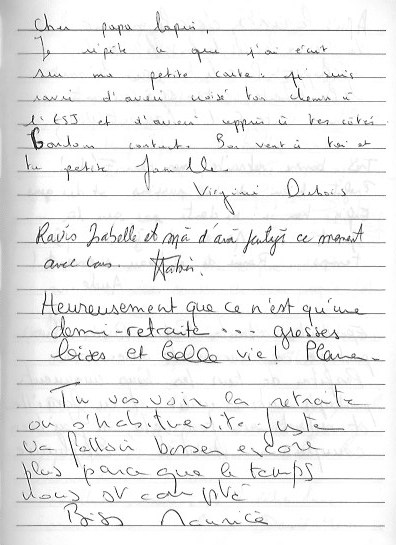 Cher papa lapin,
Je répète ce que j'ai écrit
sur ma petite carte : je suis
ravie d'avoir croisé ton chemin à
l'ESJ et d'avoir appris à tes côtés.
Gardons contact. Bon vent à toi et
ta petite famille.
Virginie Dubois
Ravis Isabelle et moi d'avoir partagé ce moment
avec vous.
Heureusement que ce n'est qu'une
demi-retraite... grosses
bises et belle vie !
Tu vas voir la retraite
on s'habitue vite. Juste
va falloir bosser encore
plus parce que le temps
nous est compté
Bises Maurice